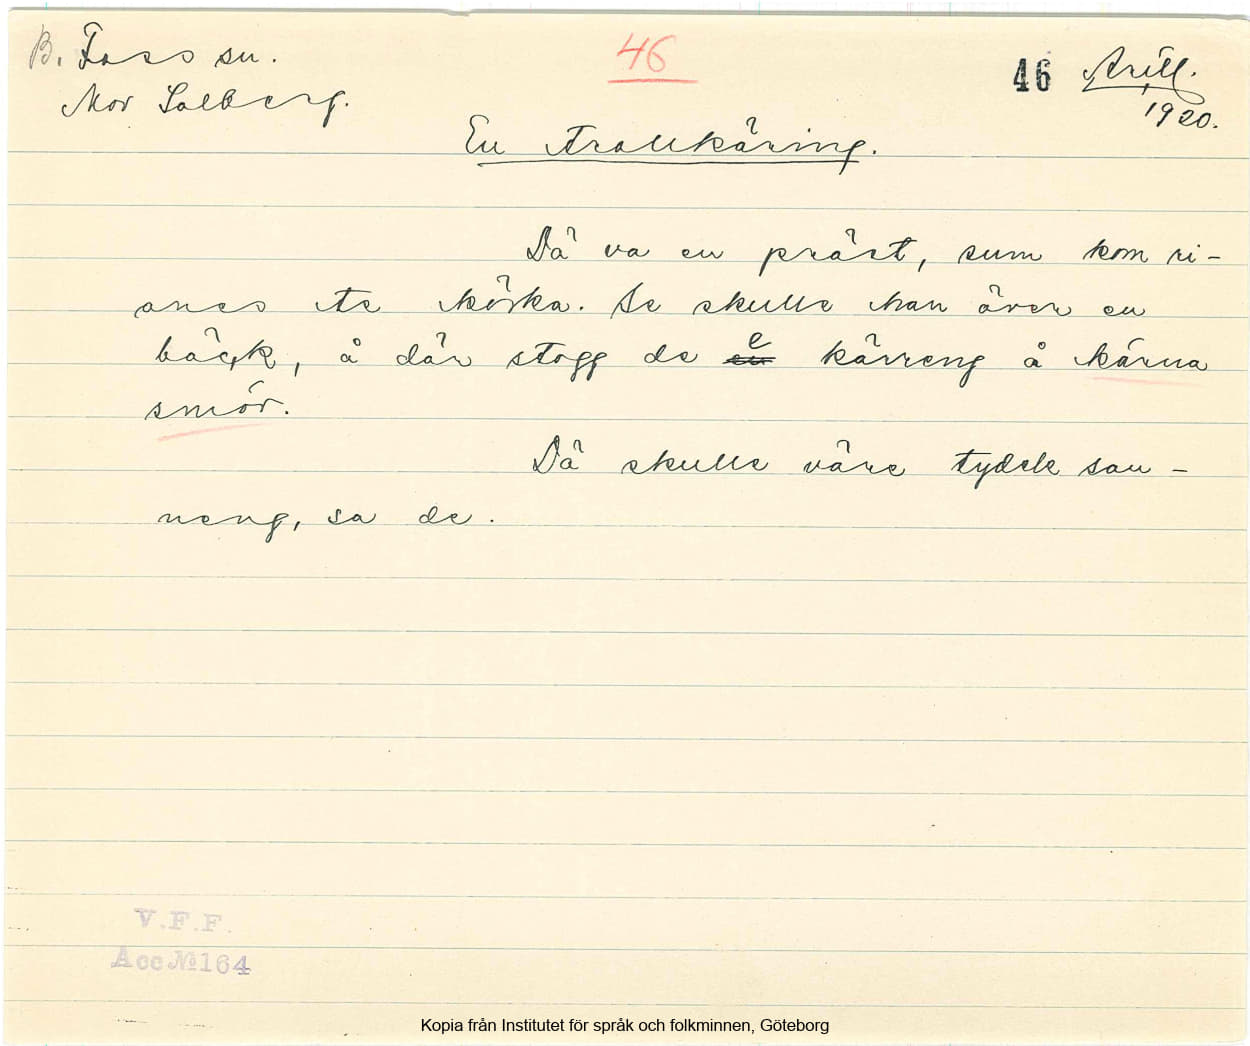 B. Foss sn.
Mor Solberg.
46
46
Arill.
1920.
En trollkäring.
Dä va en präst, sum kom ri-
anes te körka. Se skulle han över en
bäck, å där stogg de <s>en</s> e kärreng å kärna
smör.
Dä skulle väre tydele san-
neng, sa de.
V.F.F.
Acc № 164
Kopia från Institutet för språk och folkminnen, Göteborg